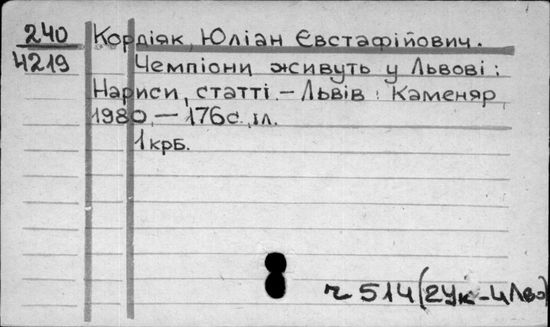 240 Кордіяк, Юліан Євстафійович.
4219 Чемпіони живуть у Львові:
Нариси, статті.– Львів: Каменяр,
1980.– 176с., іл.
1крб.
ч 514 (2Ук-4Льво)